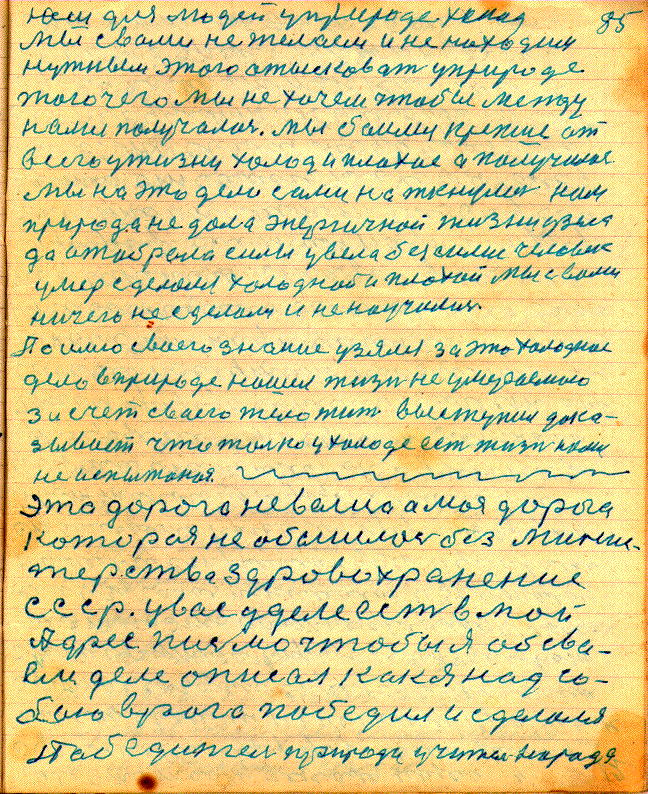 нем для людей у природе холод 85
мы свами не желаем и не находим
нужным этого отысковат у природе
того чего мы не хочем чтобы между
нами получалос. мы боимся крепше от
всего у жизни холод и плохое а получилос
мы на это дело сами наткнулис нам
природа не дала энергичной жизни узяла
да отобрала силы увела без силие человек
умер сделался холодной и плохой мы свами
ничего не сделали и не научилис.
По имю своего знание узялся за это холодное
дело в природе нашея жизн не умераемою
за счет своего тело жит выступил дока-
зывает что толко у холоде ест жизн нами
не испытоная.
Это дорога не ваша а моя дорога
которая не обошлос без минис-
терства здровохранение
СССР. у вас у деле ест в мой
Адрес писмо чтобы я об сва-
ем деле описал как я над со-
бою врога победил и сделался
Победител природы учител народа